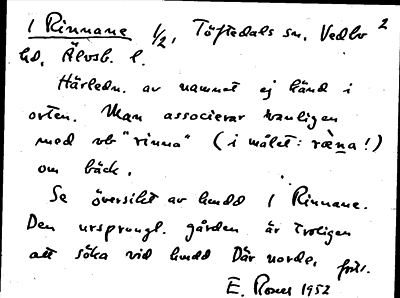 1 Rinnane 1/2, Töftedals sn, Vedbo 2
hd, Älvsb. l.
Härledn. av namnet ej känd i
orten. Man associerar vanligen
med vb "rinna" (i målet: ræ̀na!)
om bäck.
Se översikt av hmdd 1 Rinnane.
Den ursprungl. gården är troligen
att söka vid hmdd Där norde, forts.
E. 1952